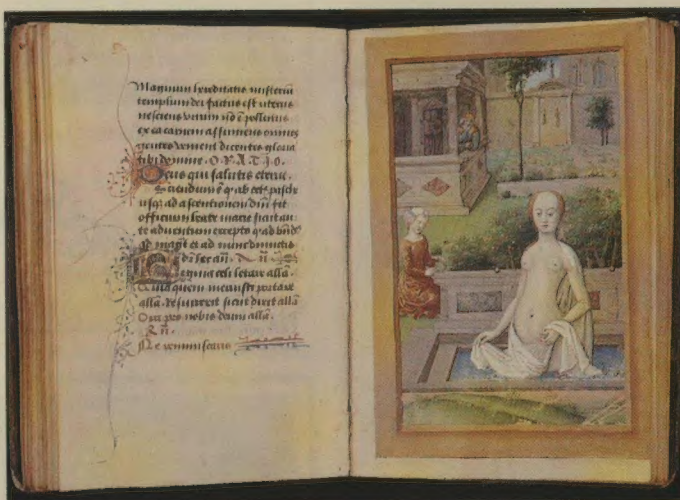 Magnum hereditatis misterium
templum dei factus est uterus
nesciens virum nō ē pollutus
ex ea carnem assumens omnes
gentes venient dicentes gloria
tibi domine . O R A T I O .
Deus qui salutis eterne .
Sciendum ē q ab ad pasche
usq ad ascentionem dni fit
officium beate marie sicut an
te adventum excepto q ad bnd
ad magt et ad nunc dimictis
Regina celi letare allā .
Quia quem meruisti portare
allā . Resurrexit sicut dixit allā
Ora pro nobis deum allā .
Ne reminiscaris